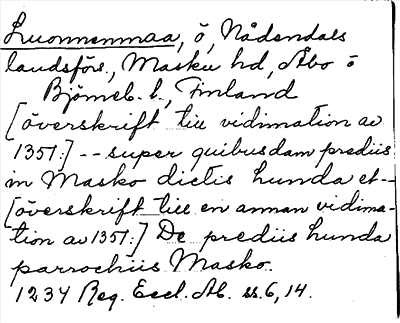 Luonnenmaa, ö, Nådendals
landsförs., Masku hd, Åbo o
Björneb. l., Finland
[överskrift till vidimation av
1351:] -- super quibusdam prediis
in Masko dictis hunda et--
[överskrift till en annan vidima-
tion av 1351:] De prediis hunda
parrochiis Masko.
1234 Reg. Eccl. Ab. ss. 6, 14.